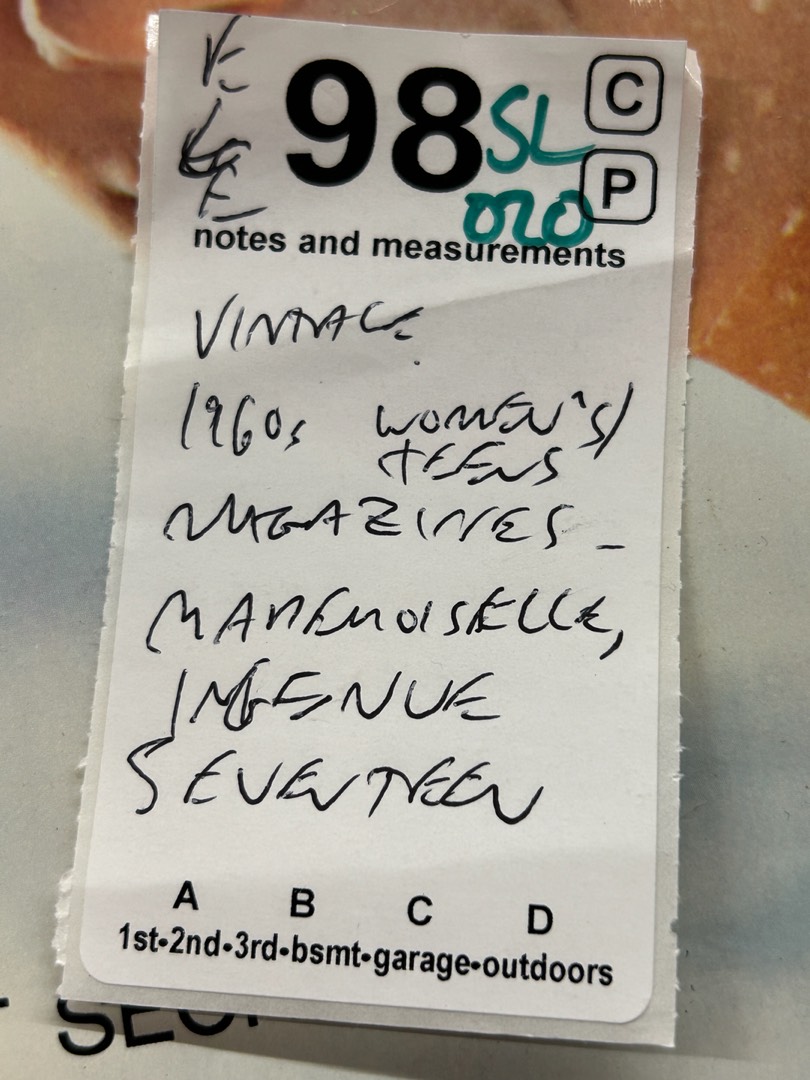 98
SL
020
C
P
notes and measurements
VINTAGE
1960s WOMEN'S/
TEENS
MAGAZINES -
MADEMOISELLE,
INGENUE
SEVENTEEN
A B C D
1st•2nd•3rd•bsmt•garage•outdoors